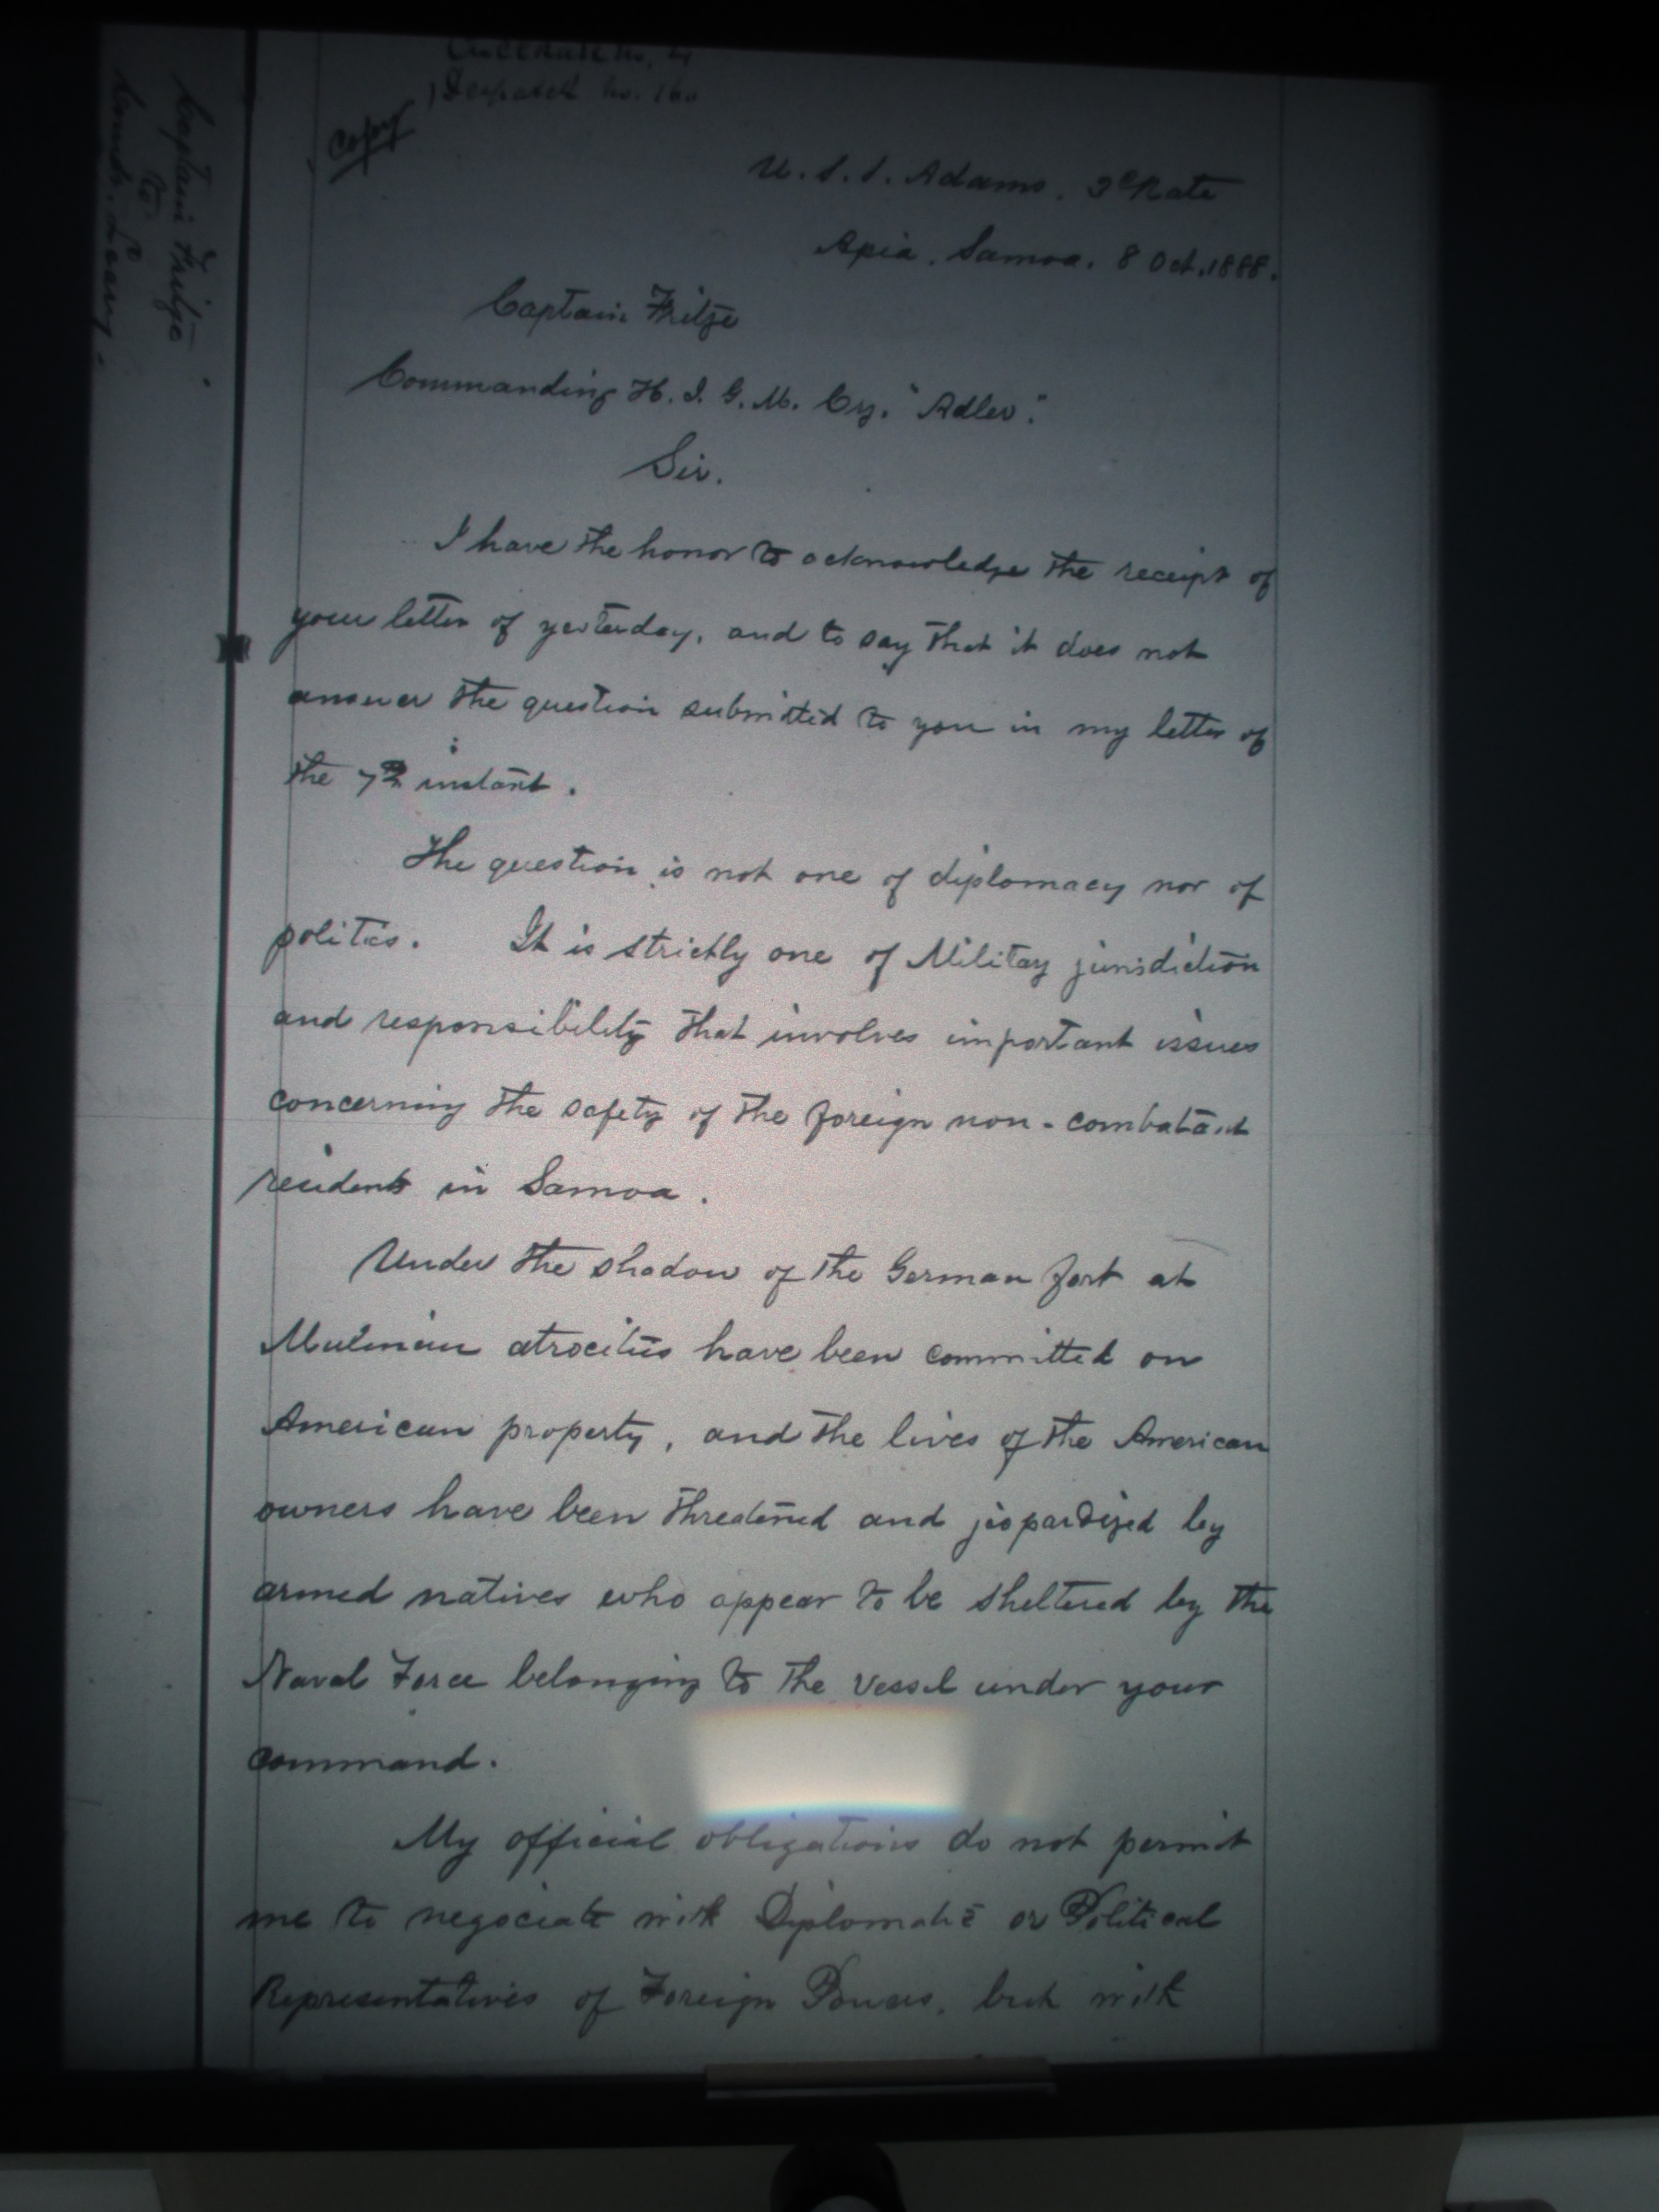 Enclosure No. 4
Despatch No. 160
Copy
U.S.S. Adams. 3e Rate
Apia. Samoa. 8 Oct. 1888.
Captain Fritze
Commanding H. I. G. M. Cr. "Adler".
Sir.
I have the honor to acknowledge the receipt of
your letter of yesterday, and to say that it does not
answer the question submitted to you in my letter of
the 7th instant.
The question is not one of diplomacy nor of
politics. It is strictly one of Military jurisdiction
and responsibility that involves important issues
concerning the safety of the foreign non-combatant
residents in Samoa.
Under the shadow of the German fort at
Mulinuu atrocities have been committed on
American property, and the lives of the American
owners have been threatened and jeopardized by
armed natives who appear to be sheltered by the
Naval Force belonging to the vessel under your
command.
My official obligations do not permit
me to negociate with Diplomatic or Political
Representatives of Foreign Powers, but with
Captain Fritze
to
Comdr. Leary.